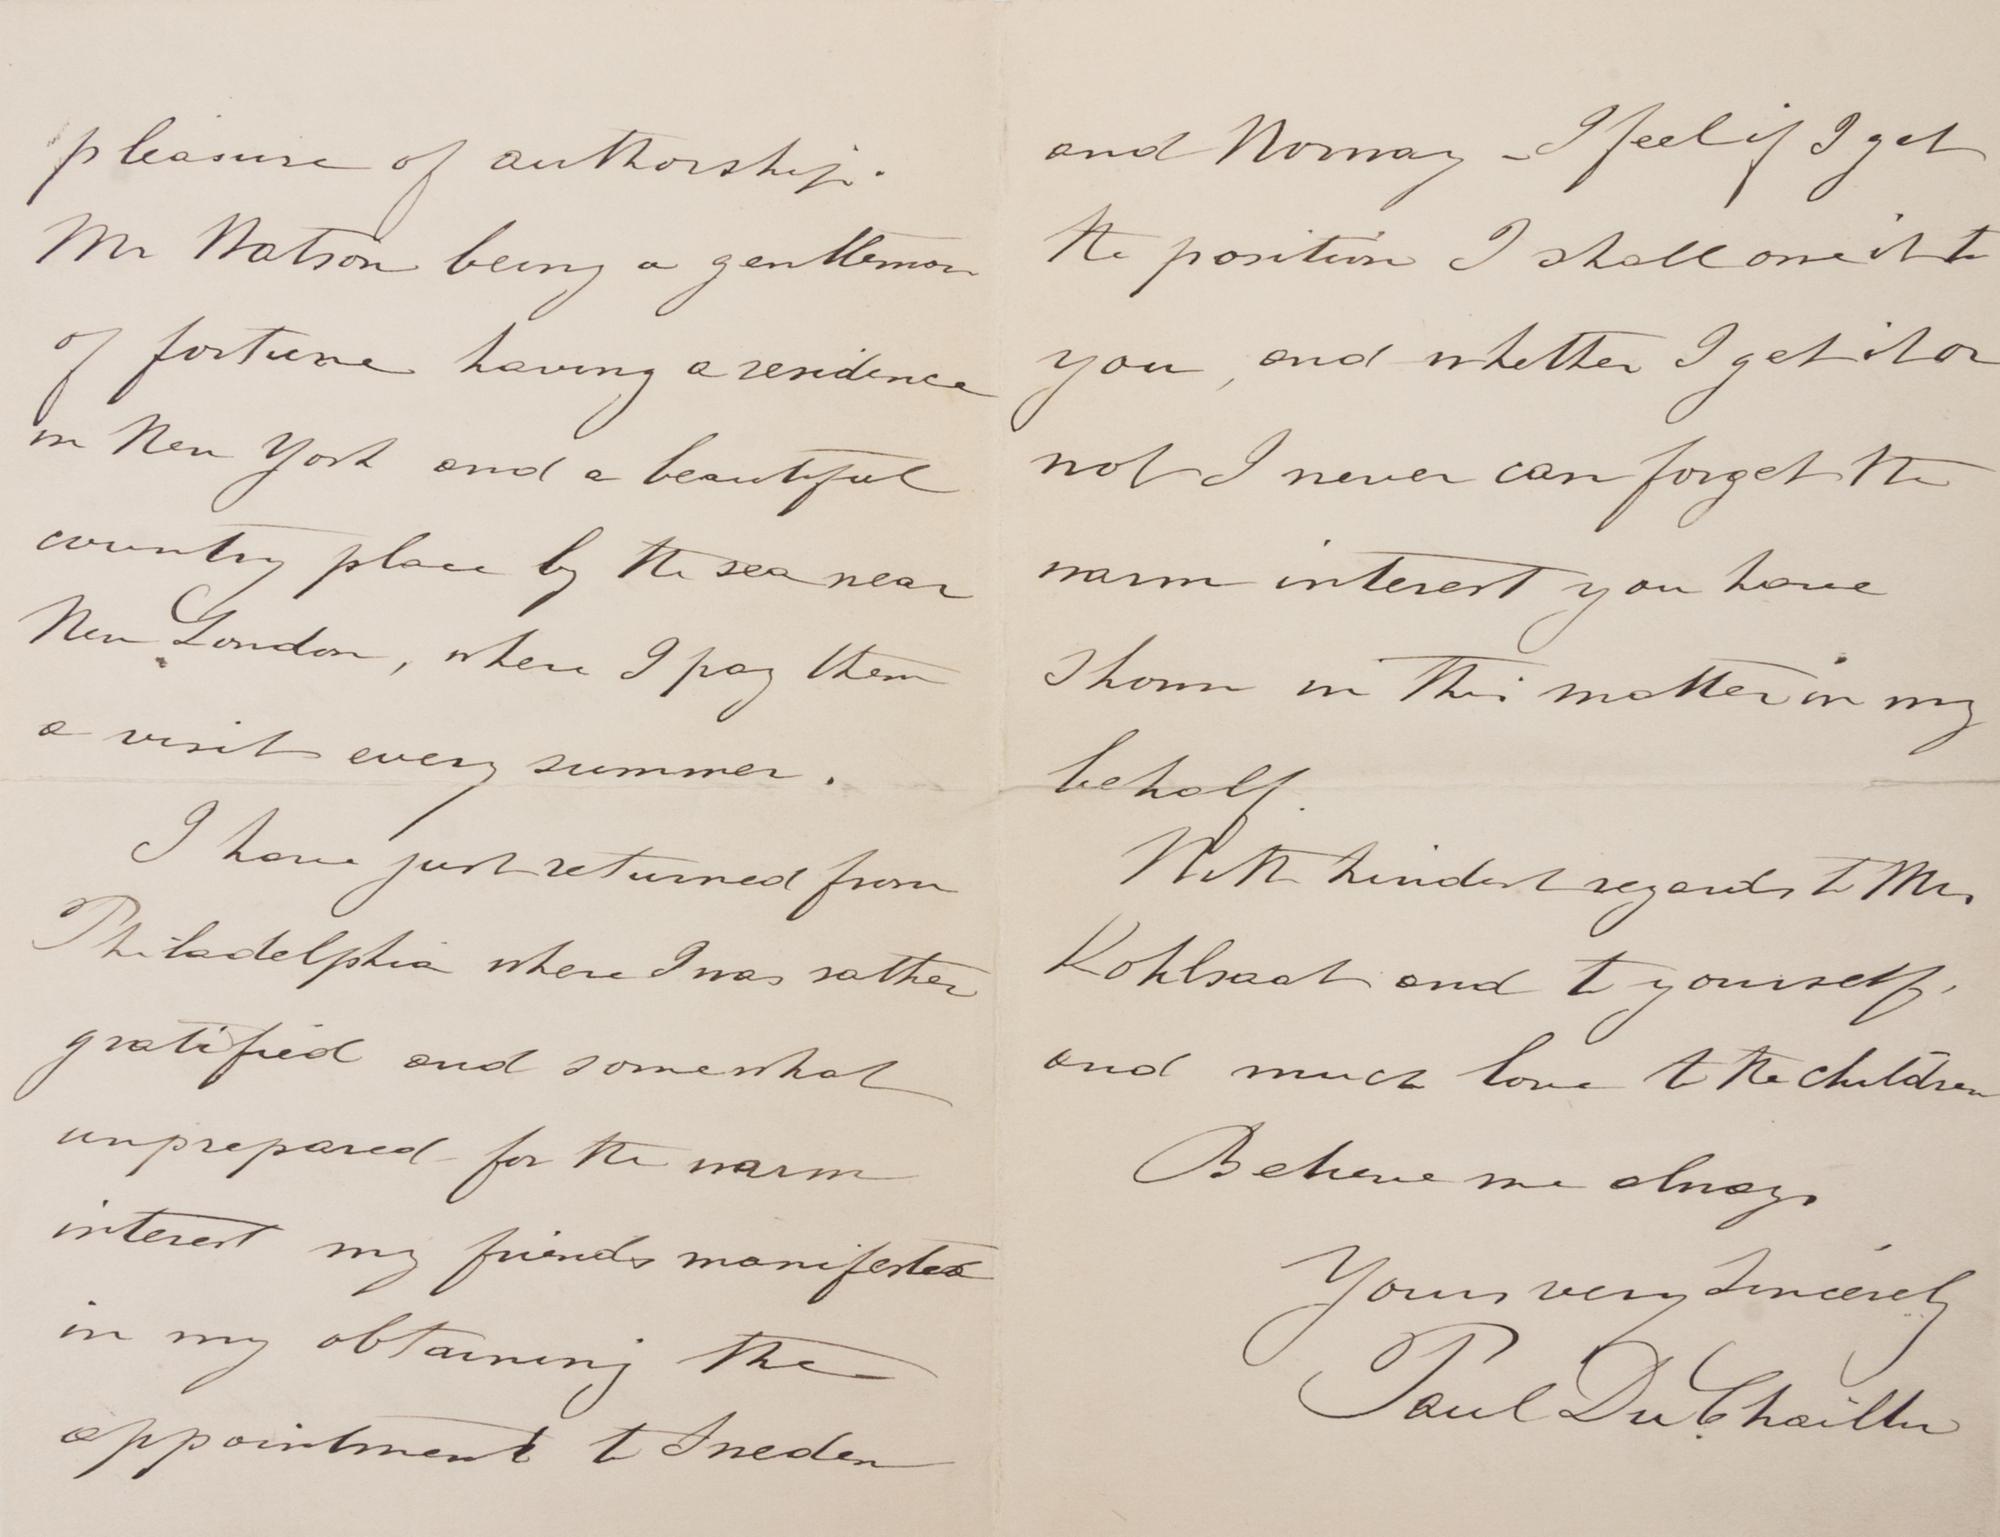 pleasure of authorship.
Mr Watson being a gentleman
of fortune having a residence
in New York and a beautiful
country place by the sea near
New London, where I pay them
a visit every summer.
I have just returned from
Philadelphia where I was rather
gratified and somewhat
unprepared for the warm
interest my friends manifested
in my obtaining the
appointment to Sweden
and Norway - I feel if I get
the position I shall owe it to
you, and whether I get it or
not I never can forget the
warm interest you have
shown in this matter in my
behalf.
With kindest regards to Mrs
Kohlsaat and to yourself,
and much love to the children
Believe me always
Yours very sincerely
Paul Du Chaillu